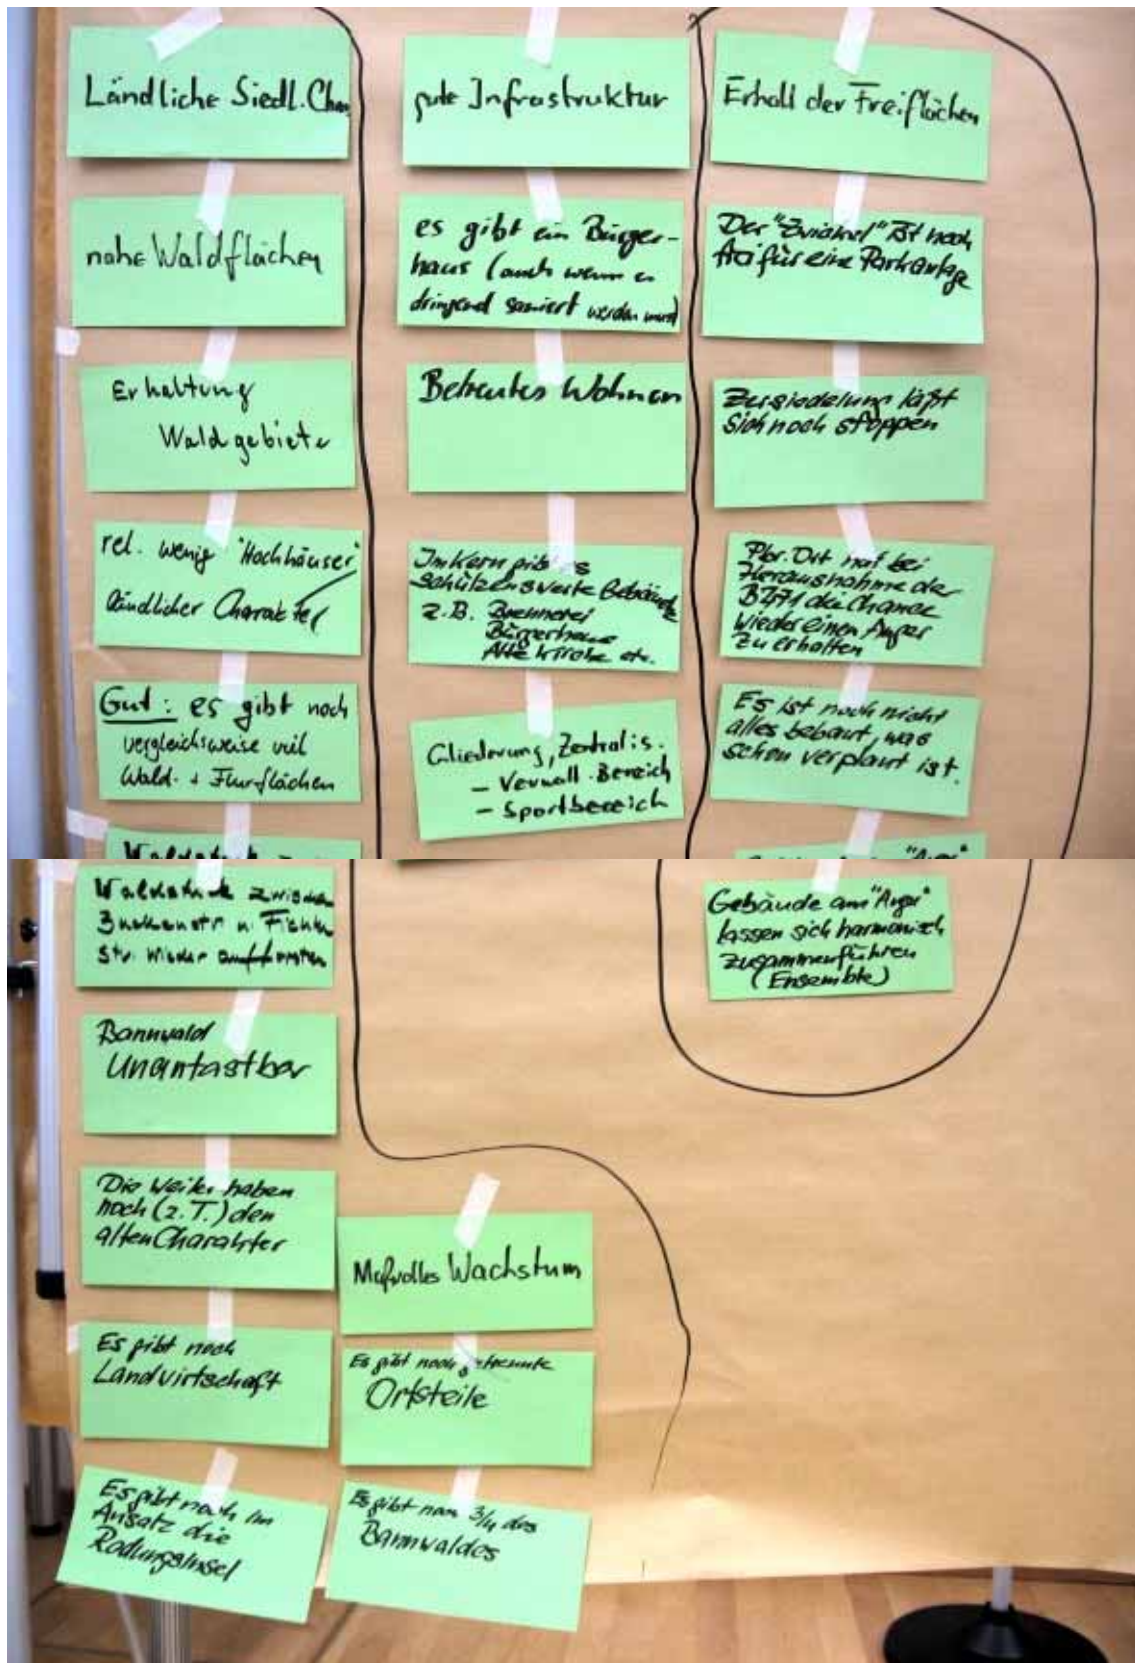 Ländliche Siedl. Char.
nahe Waldflächen
Erhaltung
Waldgebiete
rel. wenig "Hochhäuser"
ländlicher Charakter
Gut: es gibt noch
vergleichsweise viel
Wald- + Flurflächen
zwischen
u. Fichten
Str. wieder aufforsten
Bannwald
Unantastbar
Die Weiler haben
noch (z.T.) den
alten Charakter
Es gibt noch
Landwirtschaft
Es gibt noch im
Ansatz die
Rodungsinsel
Maßvolles Wachstum
Es gibt noch getrennte
Ortsteile
Es gibt noch 3/4 des
Bannwaldes
gute Infrastruktur
es gibt ein Bürger-
haus (auch wenn es
dringend saniert werden muss)
Betreutes Wohnen
Im Kern gibt es
schützenswerte Gebäude
z.B. Brennerei
Bürgerhaus
Alte Kirche etc.
Gliederung, Zentralis.
- Verwalt. Bereich
- Sportbereich
Erhalt der Freiflächen
Der "Zwickel" ist noch
frei für eine Parkanlage
Zersiedelung läßt
sich noch stoppen
Ort hat bei
Herausnahme der
B471 die Chance
wieder einen Anger
zu erhalten
Es ist noch nicht
alles bebaut, was
schon verplant ist.
Gebäude am "Anger"
lassen sich harmonisch
zusammenführen
(Ensemble)